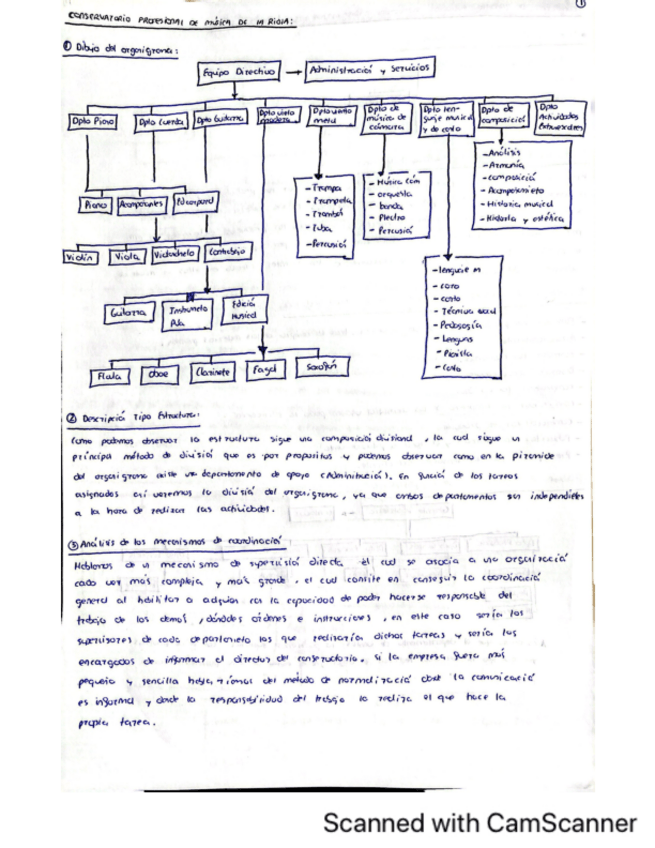 CONSERVATORIO PROFESIONAL DE MÚSICA DE LA RIOJA:
1
① Dibujo del organigrama:
Equipo Directivo
Administració y Servicios
Dpto Piano
Dpto Cuerda
Dpto Guitarra
Dpto viento madera
Dpto viento metal
Dpto de música de cámara
Dpto lenguaje musical y de coro
Dpto de composició
Dpto Actividades Extraescolares
- Trompa
- Trompeta
- Trombó
- Tuba
- Percusió
- Música Cám
- orquesta
- banda
- Plectro
- Percusió
- Análisis
- Armonía
- composició
- Historia musical
- Historia y estética
Piano
Acompañantes
Violín
Viola
Violonchelo
Contrabajo
- lenguaje m
- coro
- canto
- Técnica vocal
- Pedagogía
- Lenguas
- Pianista
- Coro
Guitarra
Instrumento
Musical
Flauta
Oboe
Clarinete
Fagot
Saxofón
② Descripció Tipo Estructura:
Como podemos observar la estructura sigue una composició divisional, la cual sigue un
principal método de divisió que es por propósitos y podemos observar como en la pirámide
del organigrama existe un departamento de apoyo (Administració). En funció de las tareas
asignadas así veremos la divisió del organigrama, ya que ambos departamentos son independientes
a la hora de realizar las actividades.
③ Análisis de los mecanismos de coordinació
Hablamos de un mecanismo de supervisió directa el cual se asocia a una organizació
cada vez más compleja y más grande, el cual consiste en conseguir la coordinació
general al habilitar a alguien con la capacidad de poder hacerse responsable del
trabajo de los demás, dándoles órdenes e instrucciones, en este caso sería los
supervisores de cada departamento los que realizaría dichas tareas y sería los
encargados de informar al director del conservatorio. Si la empresa fuera más
pequeña y sencilla del método de normalizació donde la comunicació
es informal y donde la responsabilidad del trabajo la realiza el que hace la
propia tarea.
Scanned with CamScanner